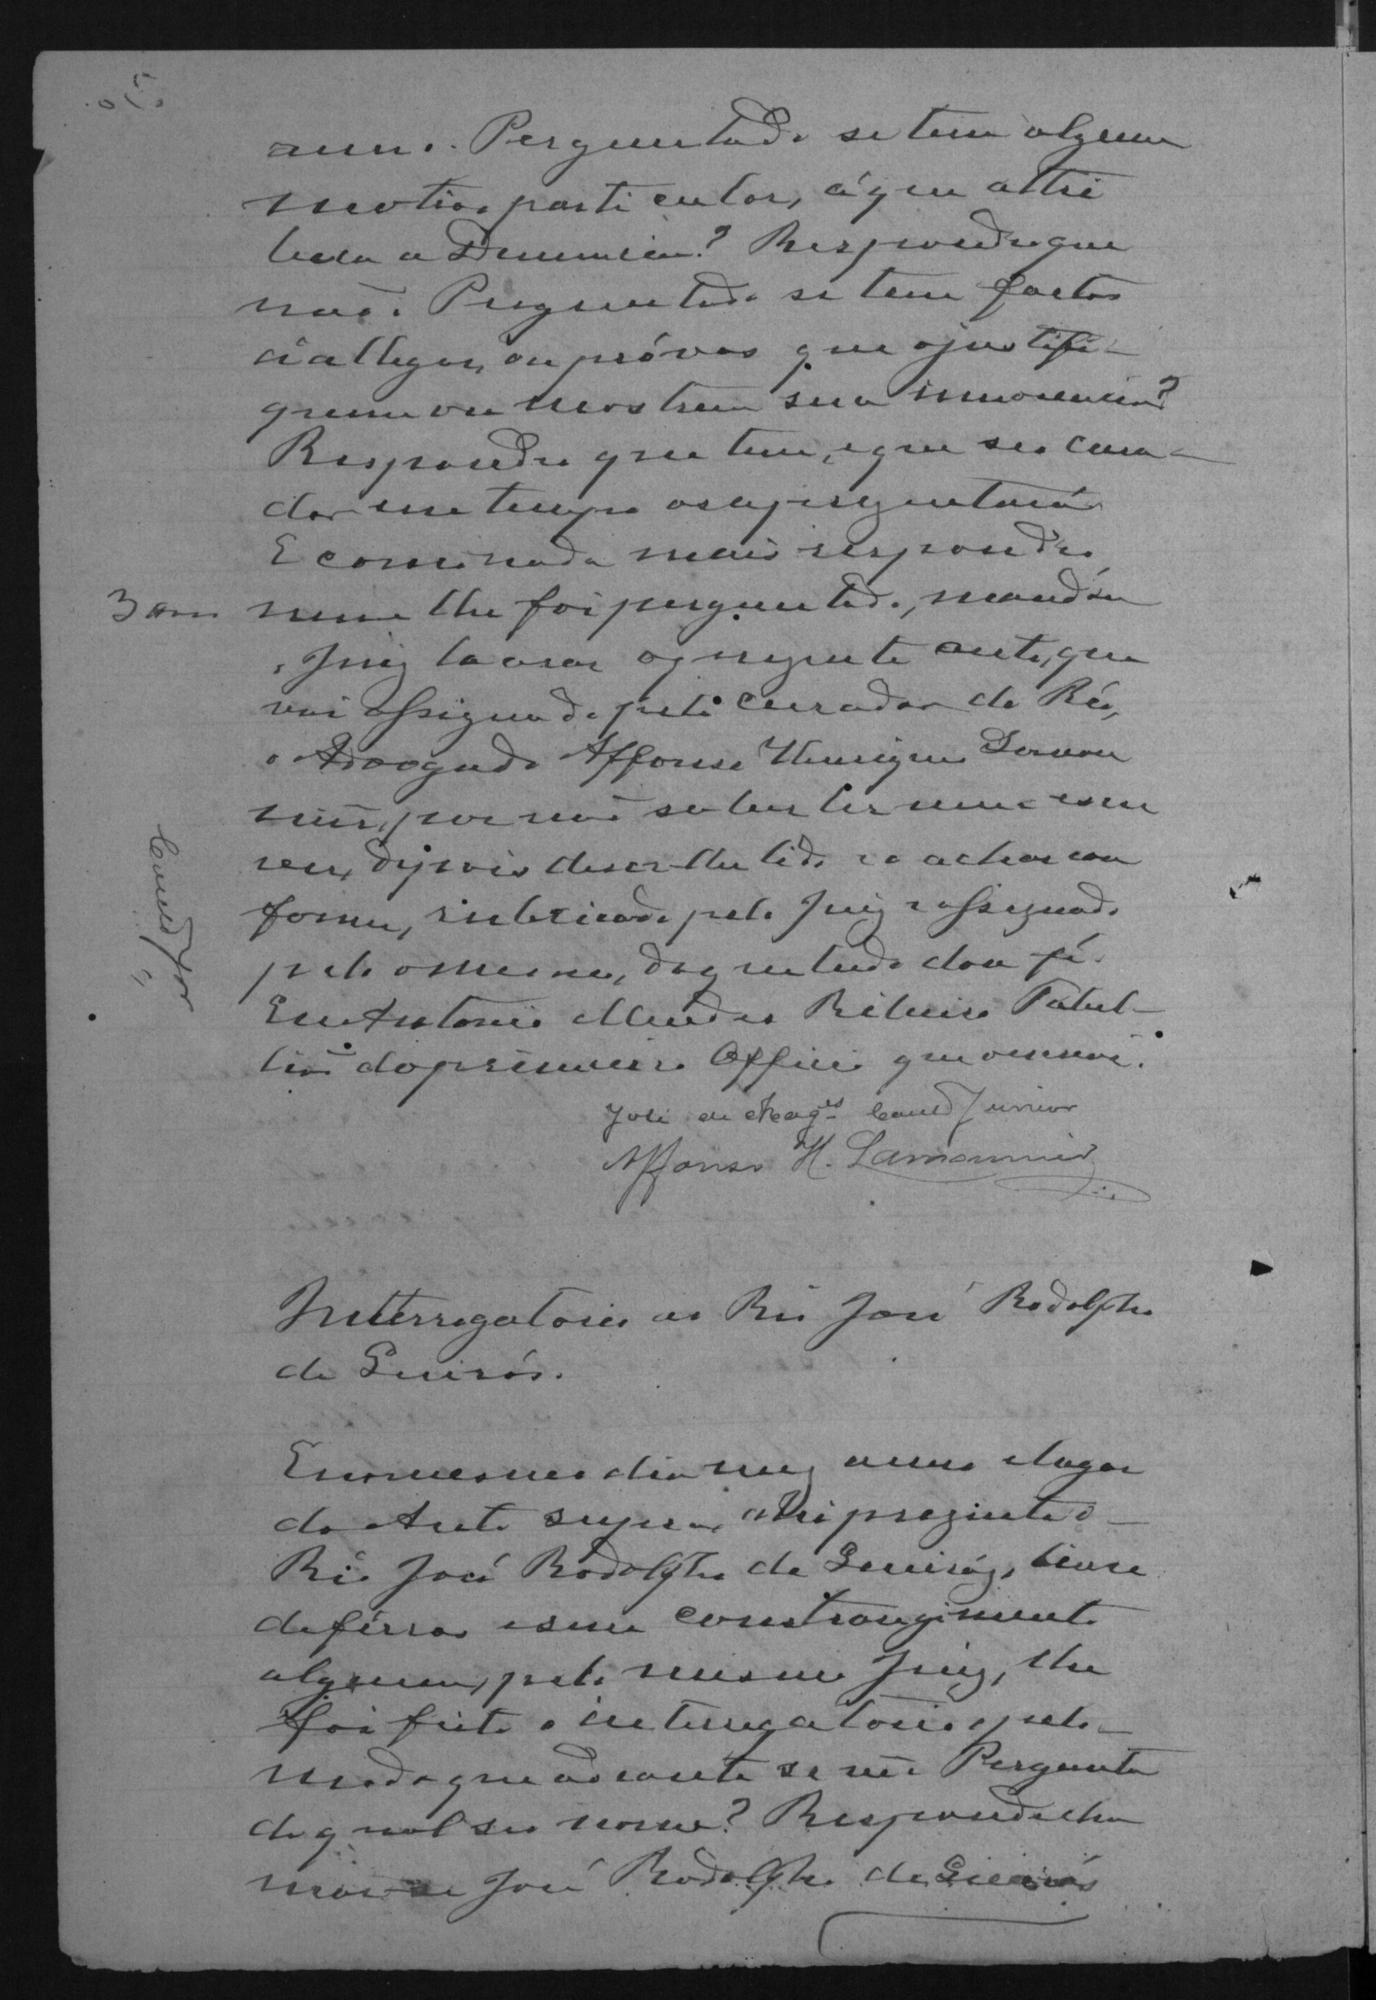 anno. Perguntado se tem algum
motivo particular, á que attri
bua a Denuncia? Respondeo que
não. Perguntado se tem factos
á allegar, ou próvas que o justifi-
quem ou mostrem sua innocencia?
Respondeo que tem, e que seo cura-
dor em tempo as aprezentará.
E como nada mais respondeo
nem lhe foi perguntado, mandou
o Juiz lavrar o prezente auto, que
vai assignado pelo curador do Réo,
o Advogado Affonso Henrique Lamou
nier, por não saber ler nem escre
ver, depois de ser-lhe lido e o achar con
forme, rubricado pelo Juiz e assignado
pelo mesmo, do que tudo dou fé.
Eu Antonio Mendes Ribeiro Tabel-
lião do primeiro Officio que o escrevi.
José de Mag.es Cancd Junior
Affonso H. Lamounier
Interrogatorio ao Réo José Rodolpho
de Queirós.
E no mesmo dia mez anno e lugar
do Auto supra, ahi prezente o
Réo José Rodolpho de Queiróz, livre
de férros e sem constrangimento
algum, pelo mesmo Juiz, lhe
foi feito o interrogatorio pelo
modo que adeante se vê. Pergunta
do qual seo nome? Respondeo cha
mar-se José Rodolpho de Queirós